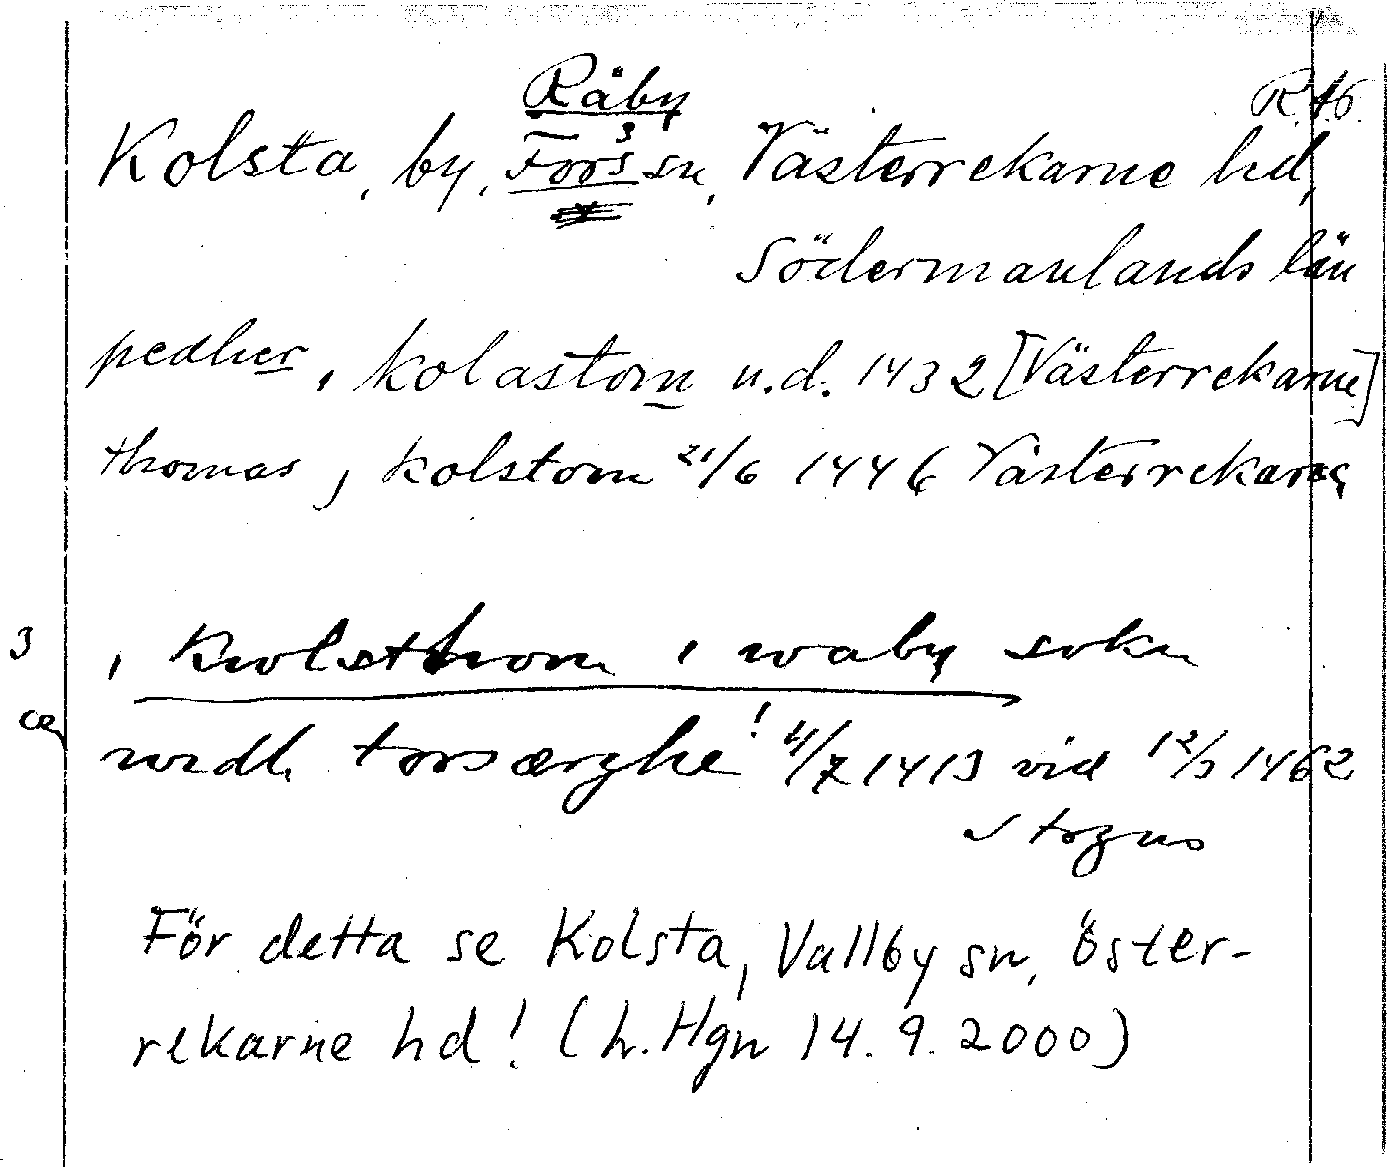 Räby
R.16.
Kolsta, by, Fors sn, Västerrekarne hd,
3
Södermanlands län
pedher, i kolastom u.d. 1432 [Västerrekarne]
thomas j kolstom 21/6 1446 Västerrekarne
3 i kwolsthom i waby sokn
widh torsærghe! 4/7 1413 vid 12/3 1462
För detta se Kolsta, Vallby sn, Öster-
rekarne hd! (L. Hgn 14.9.2000)